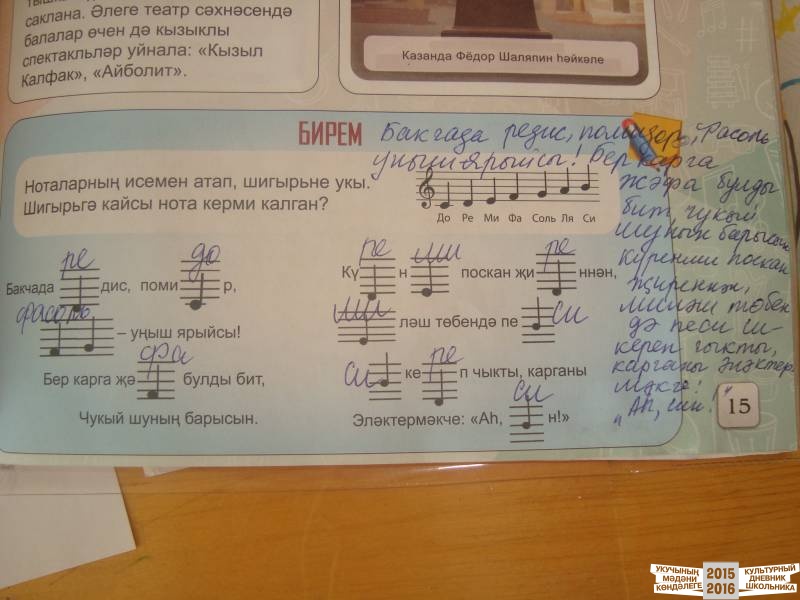 саклана. Әлеге театр сәхнәсендә
балалар өчен дә кызыклы
спектакльләр уйнала: «Кызыл
Калфак», «Айболит».
Казанда Фёдор Шаляпин һәйкәле
БИРЕМ
Ноталарның исемен атап, шигырьне укы.
Шигырьгә кайсы нота керми калган?
До Ре Ми Фа Соль Ля Си
ре до
Бакчада дис, поми р,
фасоль
– уңыш ярыйсы!
фа
Бер карга җә булды бит,
Чукый шуның барысын.
ре ми ре
Кү н поскан җи ннән,
ми си
ләш төбендә пе
си ре
ке п чыкты, карганы
си
Эләктермәкче: «Аһ, н!»
Бакчада редис, помидор, Фасоль
уңыш ярыйсы! Бер карга
җәфа булды
бит, чукый
шуның барысын
Күренми поскан
җиреннән,
миләш төбен
дә песи си-
кереп чыкты,
карганы эләктер
мәкче:
"Аһ, син!"
15
УКУЧЫНЫҢ МӘДӘНИ КӨНДӘЛЕГЕ
2015
2016
КУЛЬТУРНЫЙ ДНЕВНИК ШКОЛЬНИКА